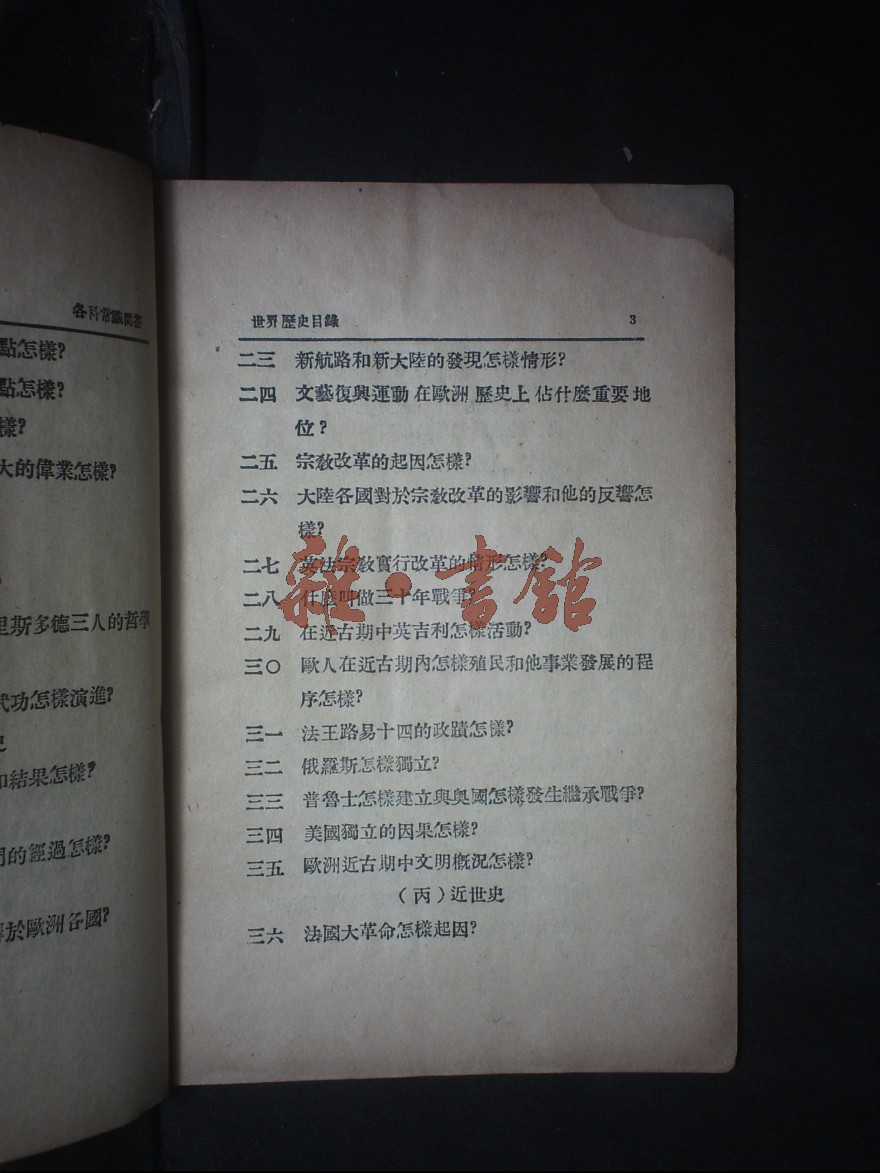 各科常識問答
點怎樣?
點怎樣?
樣?
大的偉業怎樣?
里斯多德三人的哲學
武功怎樣演進?
史
和結果怎樣?
的經過怎樣?
於歐洲各國?
世界歷史目錄 3
二三 新航路和新大陸的發現怎樣情形?
二四 文藝復興運動在歐洲歷史上佔什麼重要地
位?
二五 宗教改革的起因怎樣?
二六 大陸各國對於宗教改革的影響和他的反響怎
樣?
二七 英法宗教實行改革的情形怎樣?
二八 什麼叫做三十年戰爭?
二九 在近古期中英吉利怎樣活動?
三〇 歐人在近古期內怎樣殖民和他事業發展的程
序怎樣?
三一 法王路易十四的政蹟怎樣?
三二 俄羅斯怎樣獨立?
三三 普魯士怎樣建立與奧國怎樣發生繼承戰爭?
三四 美國獨立的因果怎樣?
三五 歐洲近古期中文明概況怎樣?
(丙)近世史
三六 法國大革命怎樣起因?
雜·書館